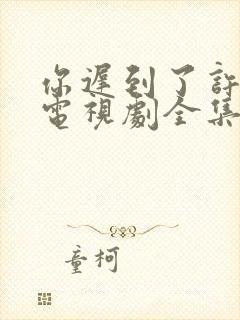 你遲到了許
電視劇全集
童柯